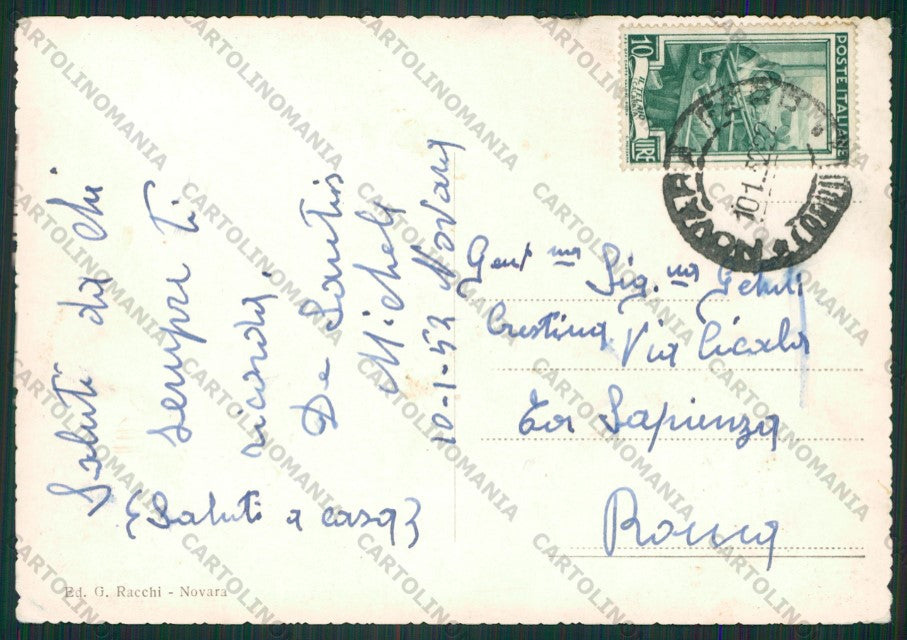 Saluti da chi
sempre ti
ricorda.
De Santis
Michele
10-1-52 Novara
{Saluti a casa}
Ed. G. Racchi - Novara
10
LIRE
POSTE ITALIANE
NOVARA
10.1.52
Gent ma Sig.na Getuli
Cristina Via Cicala
La Sapienza
Roma
CARTOLINOMANIA